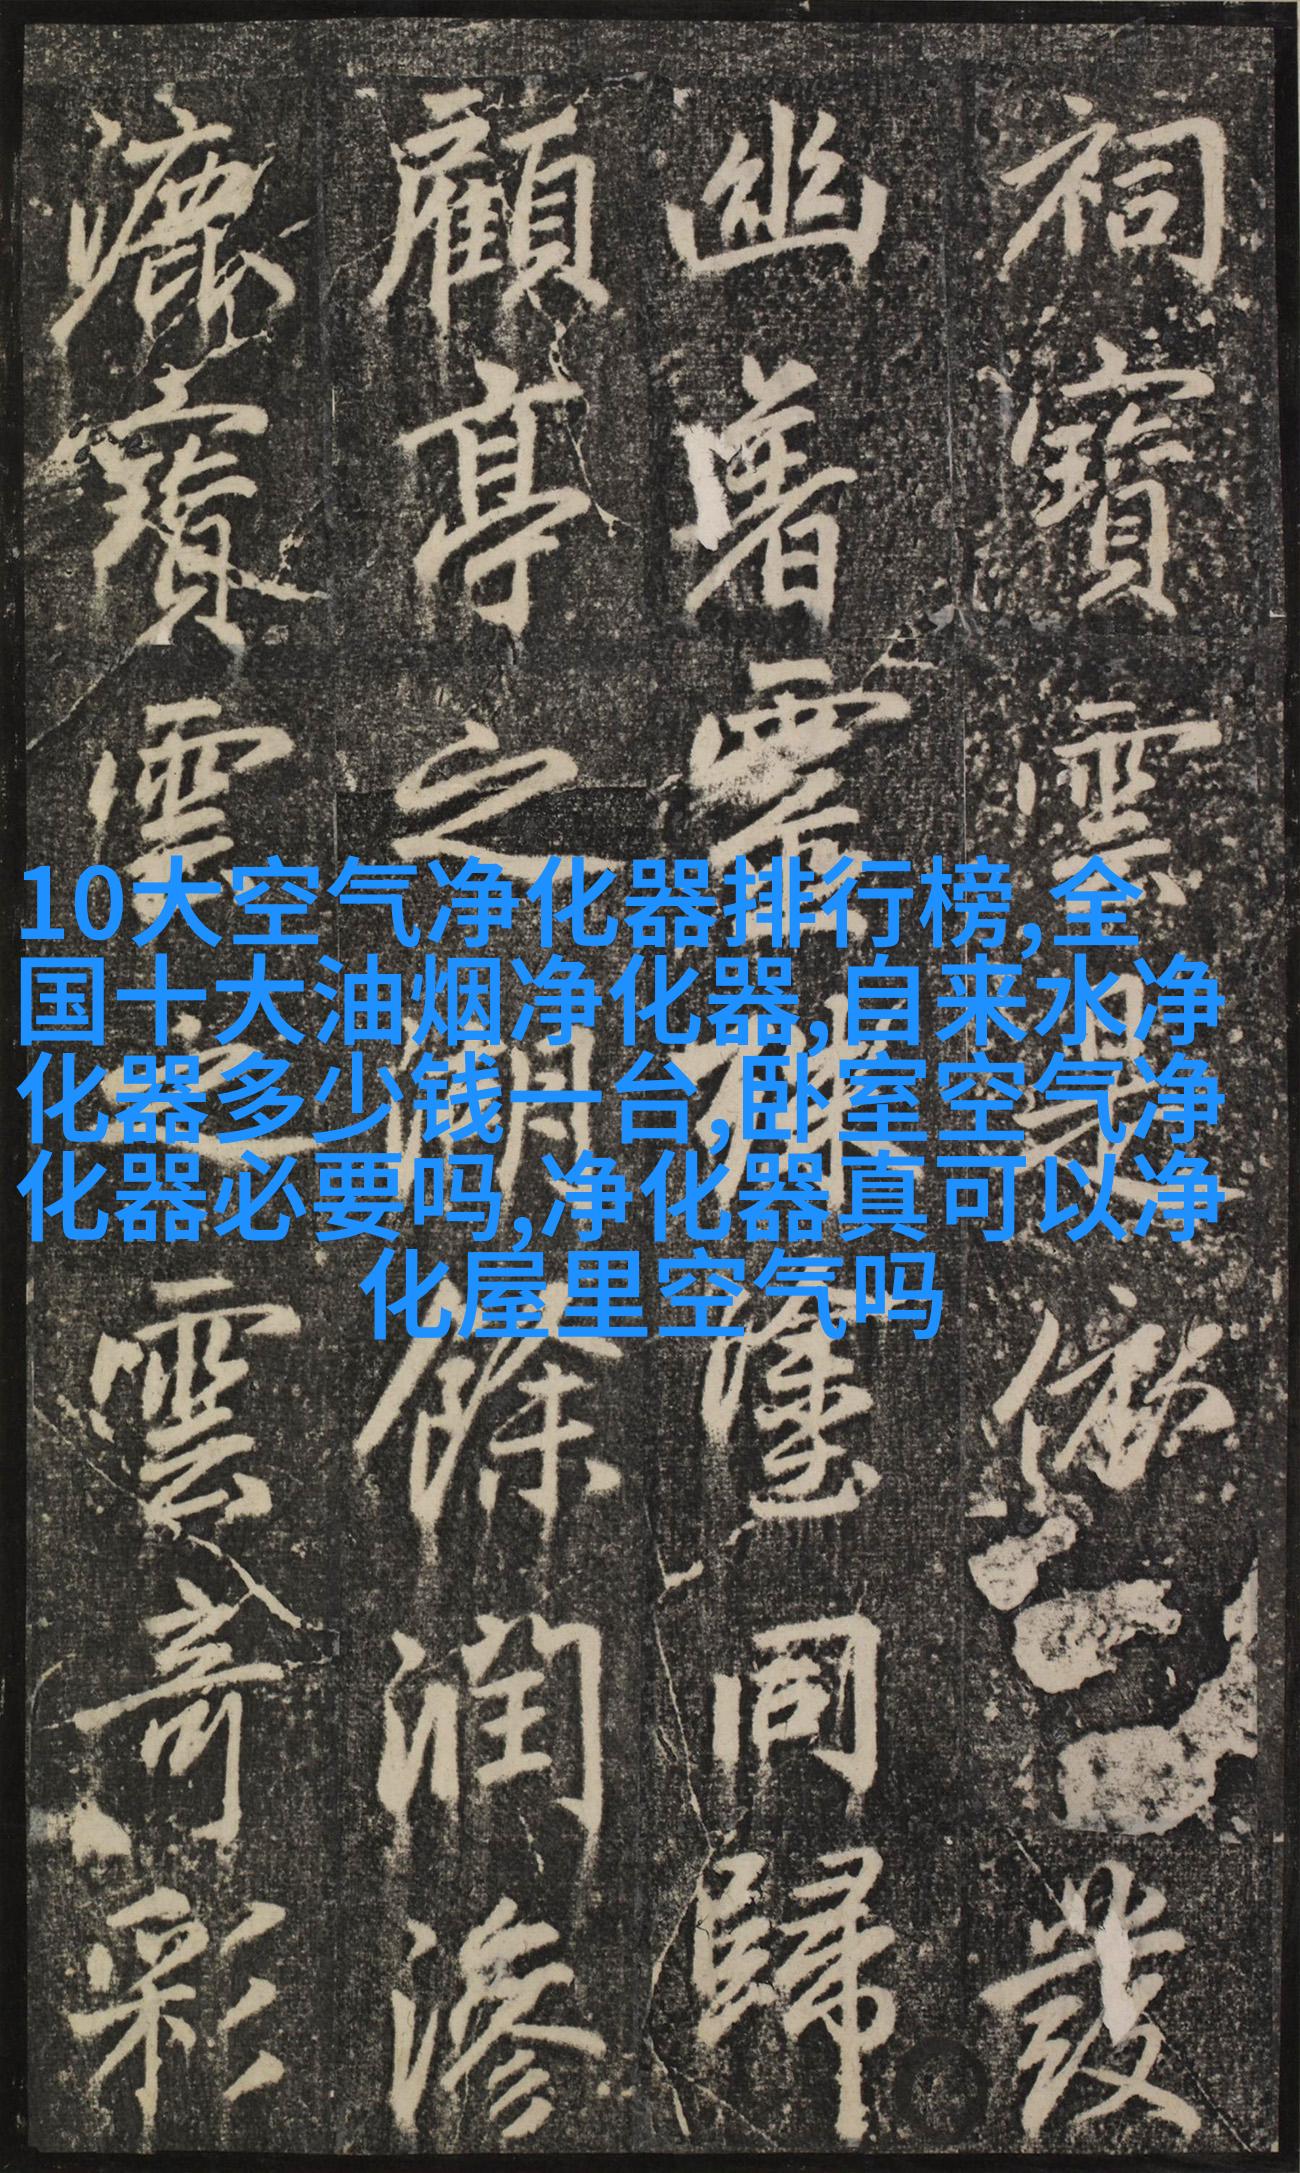 10大空气净化器排行榜,全
国十大油烟净化器,自来水净
化器多少钱一台,卧室空气净
化器必要吗,净化器真可以净
化屋里空气吗
祠寶雲是俶發
幽同歸
顧亭之湖餘潤滲
漉寶雲之雲奇彩